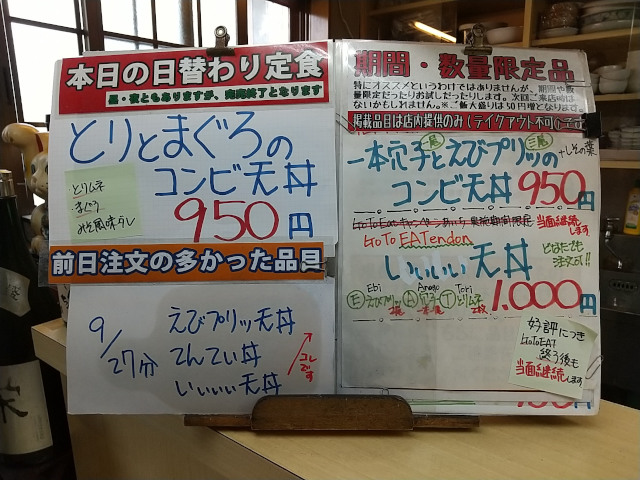 本日の日替わり定食
昼・夜ともありますが、完売終了となります
とりとまぐろの
コンビ天丼
950円
とりムネ
まぐろ
みそ風味ダレ
前日注文の多かった品目
9/27分
えびプリッツ天丼
てんてい丼
いいいい天丼
コレです
期間・数量限定品
特にオススメというわけではありませんが、期間や数
量限定だったりお試しだったりします。次回ご来店時は
ないかもしれません。※ご飯大盛りは50円増となります。
掲載品目は店内提供のみ(テイクアウト不可)です
一本穴子とえびプリッツの
二尾
+しその葉
コンビ天丼 950円
GoToEatキャンペーン
当面継続します
GoTo EATendon
いいいい天丼
注文可!!
Ebi Anago Tori
Eえびプリッツ A穴子 Tとりムネ
2尾 一本 2枚
1.000円
好評につき
GoToEAT
終了後も
当面継続します